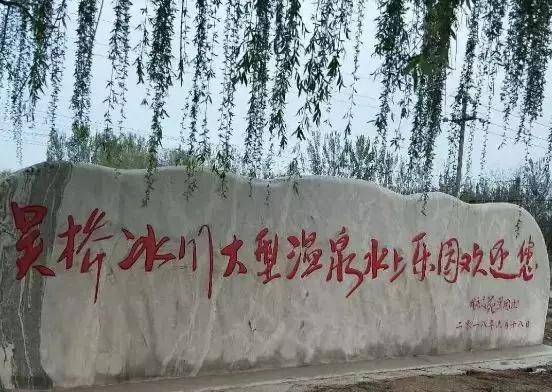 吴桥冰川大型温泉水上乐园欢迎您
二〇一八年六月十八日